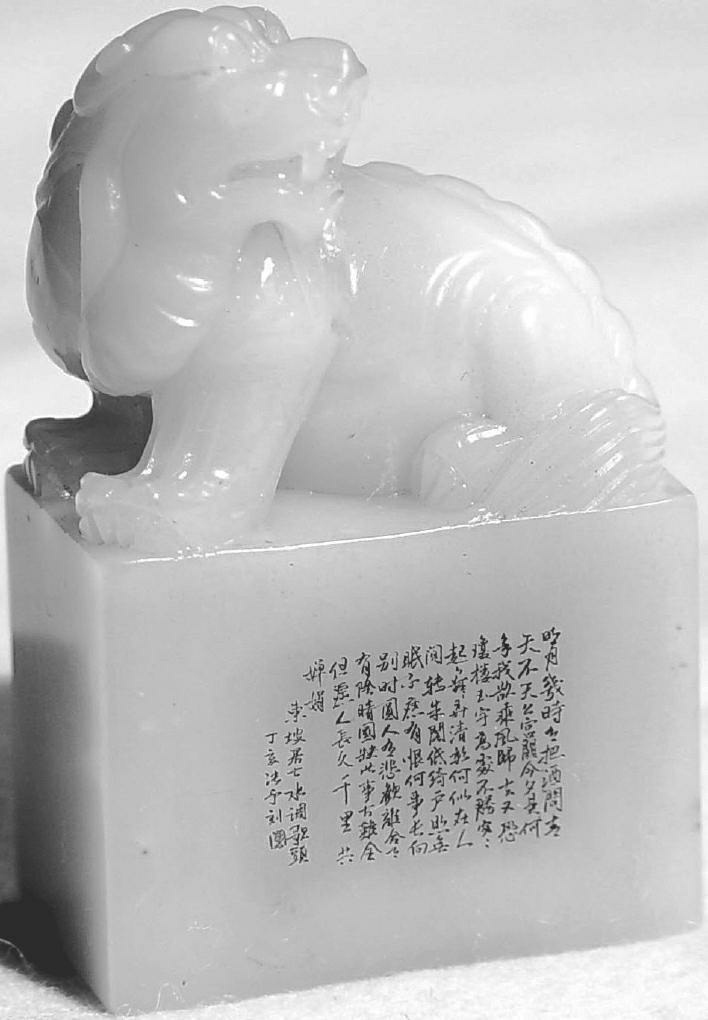 明月幾時有把酒問青
天不天上宫闕今夕是何
年我欲乘風歸去又恐
瓊樓玉宇高處不勝寒
起舞弄清影何似在人
間轉朱閣低綺户照無
眠不應有恨何事長向
别時圓人有悲歡離合月
有陰晴圓缺此事古難全
但願人長久千里共
嬋娟
東坡居士水调歌頭
丁亥刻